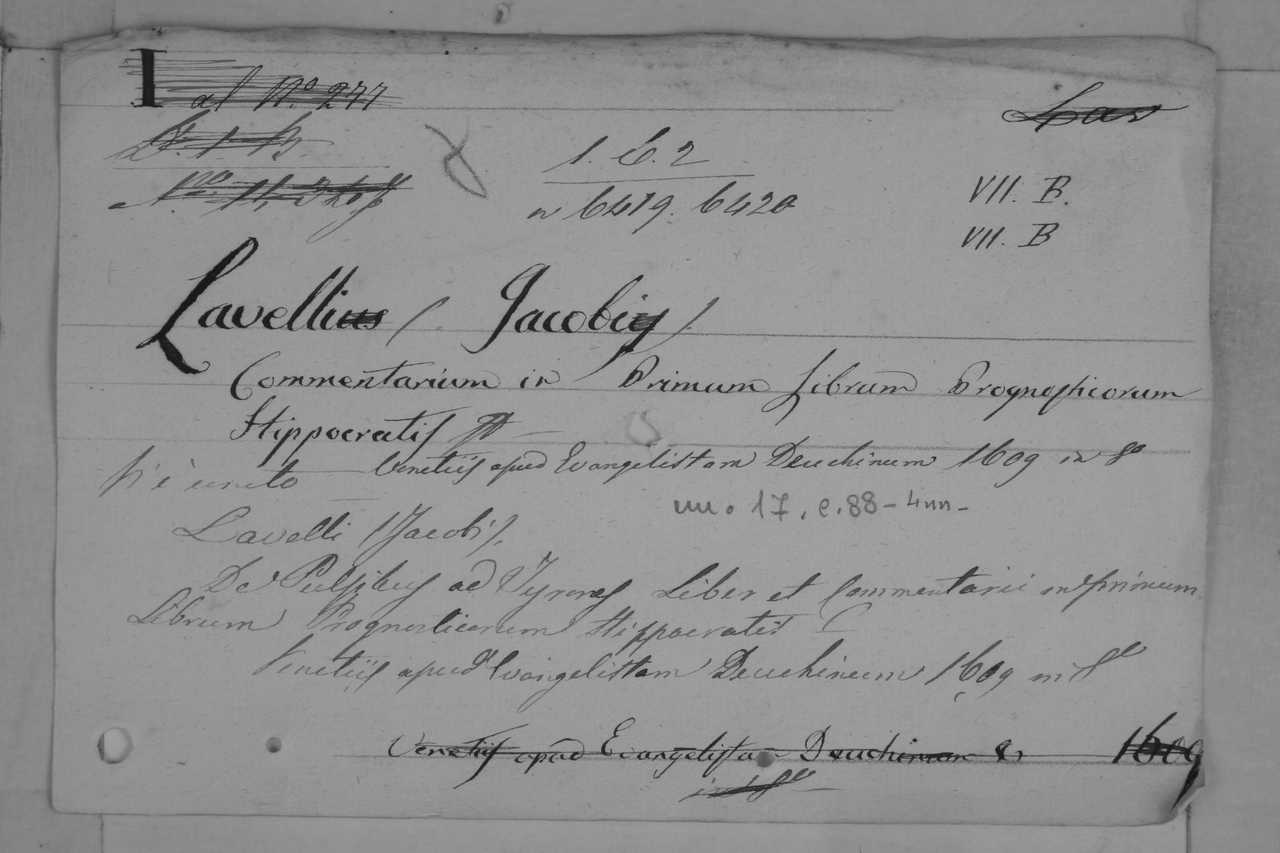 I al N.º 277
Las
D. 1. B.
1. C. 2
N.ro
n 6419. 6420
VII. B.
VII. B
Lavellius (Jacobi)
Commentarium in Primum Librum Prognosticorum
Hippocratis
Venetiis apud Evangelistam Deuchinum 1609 in 8º
vi è unito
mm. 17, c. 88 - 4nn -
Lavelli (Jacobi).
De Pulsibus ad Tyrones Liber et Commentarii in primum
Librum Prognosticorum Hippocratis
Venetiis apud Evangelistam Deuchineum 1609 in 8º
Venetiis apud Evangelistam Deuchinum 1609
in 8º